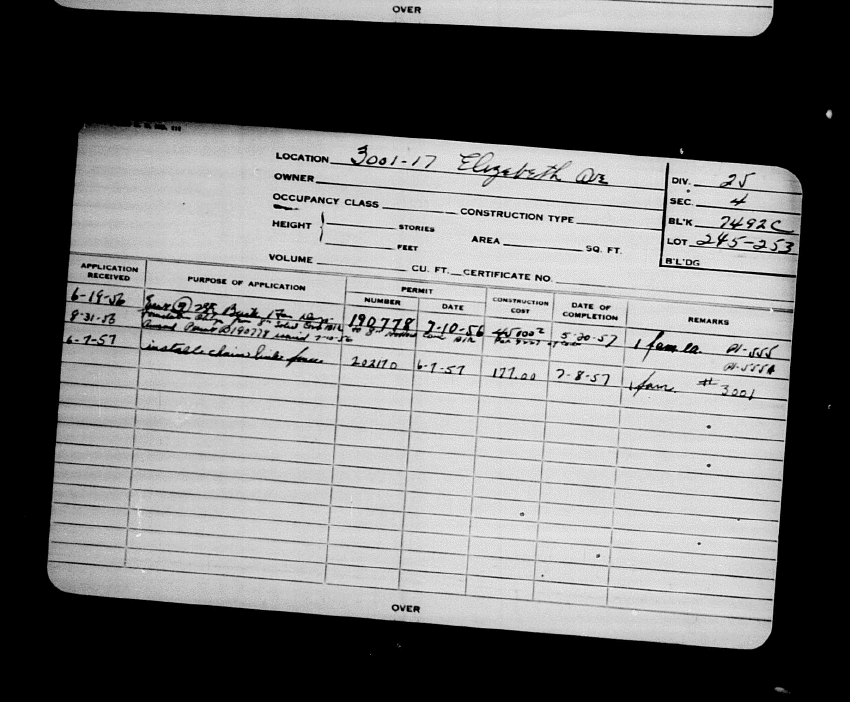 OVER
LOCATION 3001-17 Elizabeth Ave
OWNER
OCCUPANCY CLASS CONSTRUCTION TYPE
HEIGHT STORIES
FEET
AREA SQ. FT.
VOLUME CU. FT. CERTIFICATE NO.
DIV. 25
SEC. 4
BL'K 7492C
LOT 245-253
B'L'DG
APPLICATION RECEIVED PURPOSE OF APPLICATION PERMIT NUMBER DATE CONSTRUCTION COST DATE OF COMPLETION REMARKS
6-19-56 190778 7-10-56 5-20-57 1 fam ea. A1-555
8-31-56 Amend Permit 190778 7-10-56 A1-555A
6-7-57 install chain link fence 202170 6-7-57 177.00 7-8-57 1 fam. # 3001
OVER